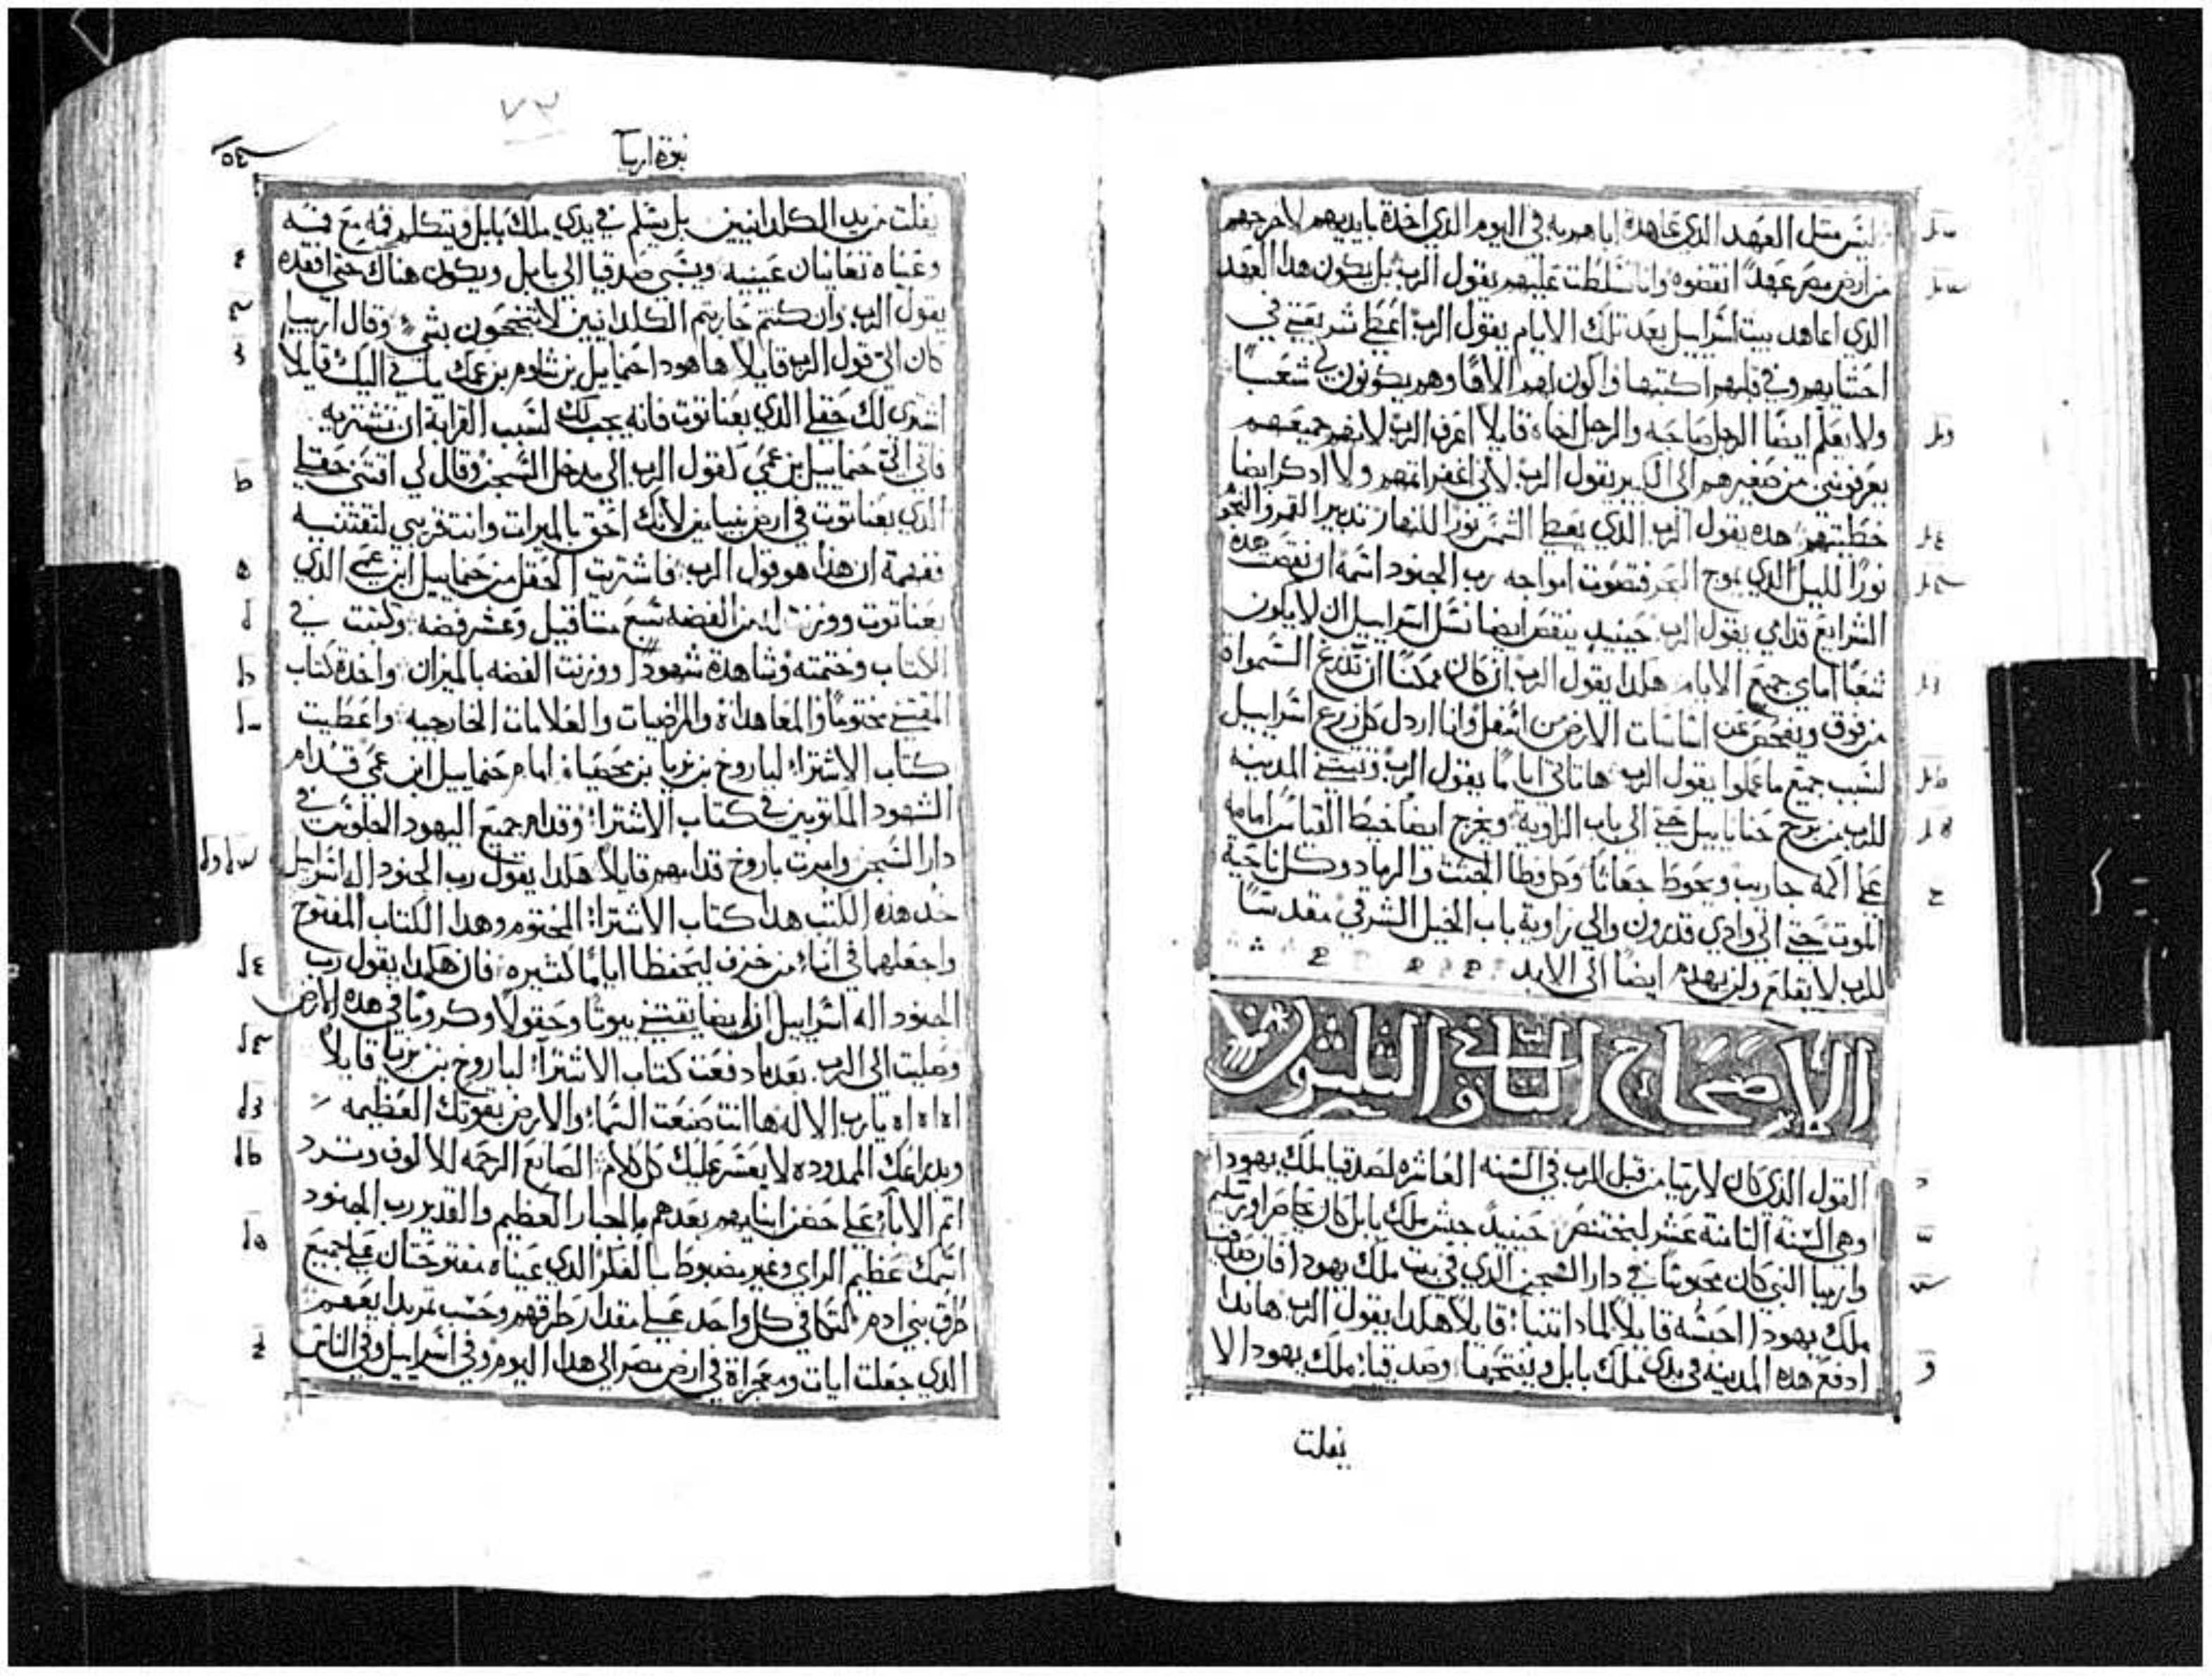 ليس مثل العهد الذي عاهدة اباهم به في اليوم الذي اخدة بايديهم لاخرجهم
من ارض مصر عهدًا انقضوه وانا تسلطت عليهم يقول الرب بل يكون هدا العهد
الذي اعاهد بيت اسراييل بعد تلك الايام يقول الرب اعطي شريعتي في
احشايهم وفي قلبهم اكتبها واكون لهم الاهًا وهم يكونون لي شعبًا
ولا يعلم ايضًا الرجل صاحبه والرجل اخاه قايلاً اعرف الرب لانهم جميعهم
يعرفونني من صغيرهم الى الكبير يقول الرب لاني اغفر اتمهم ولا ادكر ايضا
خطيتهم هده يقول الرب الذي يعطي الشمس نورًا للنهار تدبير القمر والنجوم
نورًا لليل الذي يموج البحر فتصوت امواجه رب الجنود اسمه ان نقصت هده
الشرايع قدامي يقول الرب حينيد ينقص ايضا نسل اسراييل ان لا يكون
شعبًا امامي جميع الايام هكدا يقول الرب ان كان ممكنًا ان تدرع السمواة
من فوق ويفحص عن اساسات الارض من اسفل وانا اردل كل زرع اسراييل
لسبب جميع ما عملوا يقول الرب ها تاتي اياما يقول الرب وتبتني المدينه
للرب من برج حنانا ييل حتي الى باب الزاوية ويخرج ايضًا خيط القياس امامه
على اكمة جاريب ويحوط جعاثا وكل وطا الجثث والرماد وكل ناحية
الموت حتي الى وادي قدرون والي زاوية باب الخيل الشرقي مقدسًا
للرب لا يقلع ولن يهدم ايضًا الى الابد
الاصحاح الثاني والثلثون
القول الذي كان لارميا من قبل الرب في السنه العاشره لصدقيا ملك يهودا
وهي السنة التامنة عشر لبختنصر حينيدٍ جيش ملك بابل كان يحاصر اورشليم
وارميا النبي كان محبوسًا في دار السجن الذي في بيت ملك يهودا فان صدقيا
ملك يهودا احبسه قايلاً لمادا تتنبا قايلاً هكدا يقول الرب هاندا
ادفع هده المدينه في يدي ملك بابل ويفتتحها وصدقيا ملك يهودا لا
يفلت
نبوة ارميا
٥٤
٧٣
يفلت من يد الكلدانيين بل يسلم في يدي ملك بابل ويتكلم فمه مع فمه
وعيناه تعاينان عينيه ويسبى صدقيا الى بابل ويكون هناك حتى افقده
يقول الرب وان كنتم حاربتم الكلدانيين لا تنجحون بشي وقال ارميا
كان الي قول الرب قايلا ها هودا حنماييل بن شالوم بن عمك ياتي اليك قايلا
اشتري لك حقلي الذي بعناتوت فانه يجب لك لسبب القرابة ان تشتريه
فاتى الي حنماييل بن عمي كقول الرب الى مدخل السجن وقال لي اقتني حقلي
الذي بعناتوت في ارض بنيامين لانك احق بالميرات وانت قريبي لتقتنيه
ففهمة ان هذا هو قول الرب فاشتريت الحقل من حنماييل ابن عمي الذي
بعناتوت ووزنت له من الفضه سبع متاقيل وعشر فضه وكتبت في
الكتاب وختمته وشاهدة شهودًا ووزنت الفضه بالميزان واخدة كتاب
المقتني مختومًا والمعاهداة والمرضيات والعلامات الخارجيه واعطيت
كتاب الاشتراء لباروخ بن نريا بن محسياة امام حنماييل ابن عمي قدام
الشهود المكتوبين في كتاب الاشتراء وقدام جميع اليهود الجلوس في
دار السجن وامرت باروخ قدامهم قايلاً هكدا يقول رب الجنود اله اسراييل
خد هذه الكتب هدا كتاب الاشتراء المختوم وهدا الكتاب المفتوح
واجعلهما في اناء من خزف ليحفظا ايامًا كثيره فان هكدا يقول رب
الجنود اله اسراييل ان ايضا يقتني بيوتًا وحقولاً وكرومًا في هده الارض
وصليت الى الرب بعدما دفعت كتاب الاشتراء لباروخ بن نريا قايلاً
اه اه اه يارب الاله ها انت صنعت السماء والارض بقوتك العظيمه
وبدراعك الممدوده لا يعسر عليك كل كلام الصانع الرحمه للالوف وترد
اتم الاباء على حضن ابنايهم بعدهم يا الجبار العظيم والقدير رب الجنود
اسمك عظيم الراي وغير مضبوط بالفكر الذي عيناه مفتوحتان على جميع
طرق بني ادم لتكافي كل واحد على مقدار طرقهم وحسب تمرة ابداعهم
الذي جعلت ايات ومعجزاة في ارض مصر الى هدا اليوم وفي اسراييل وفي الناس